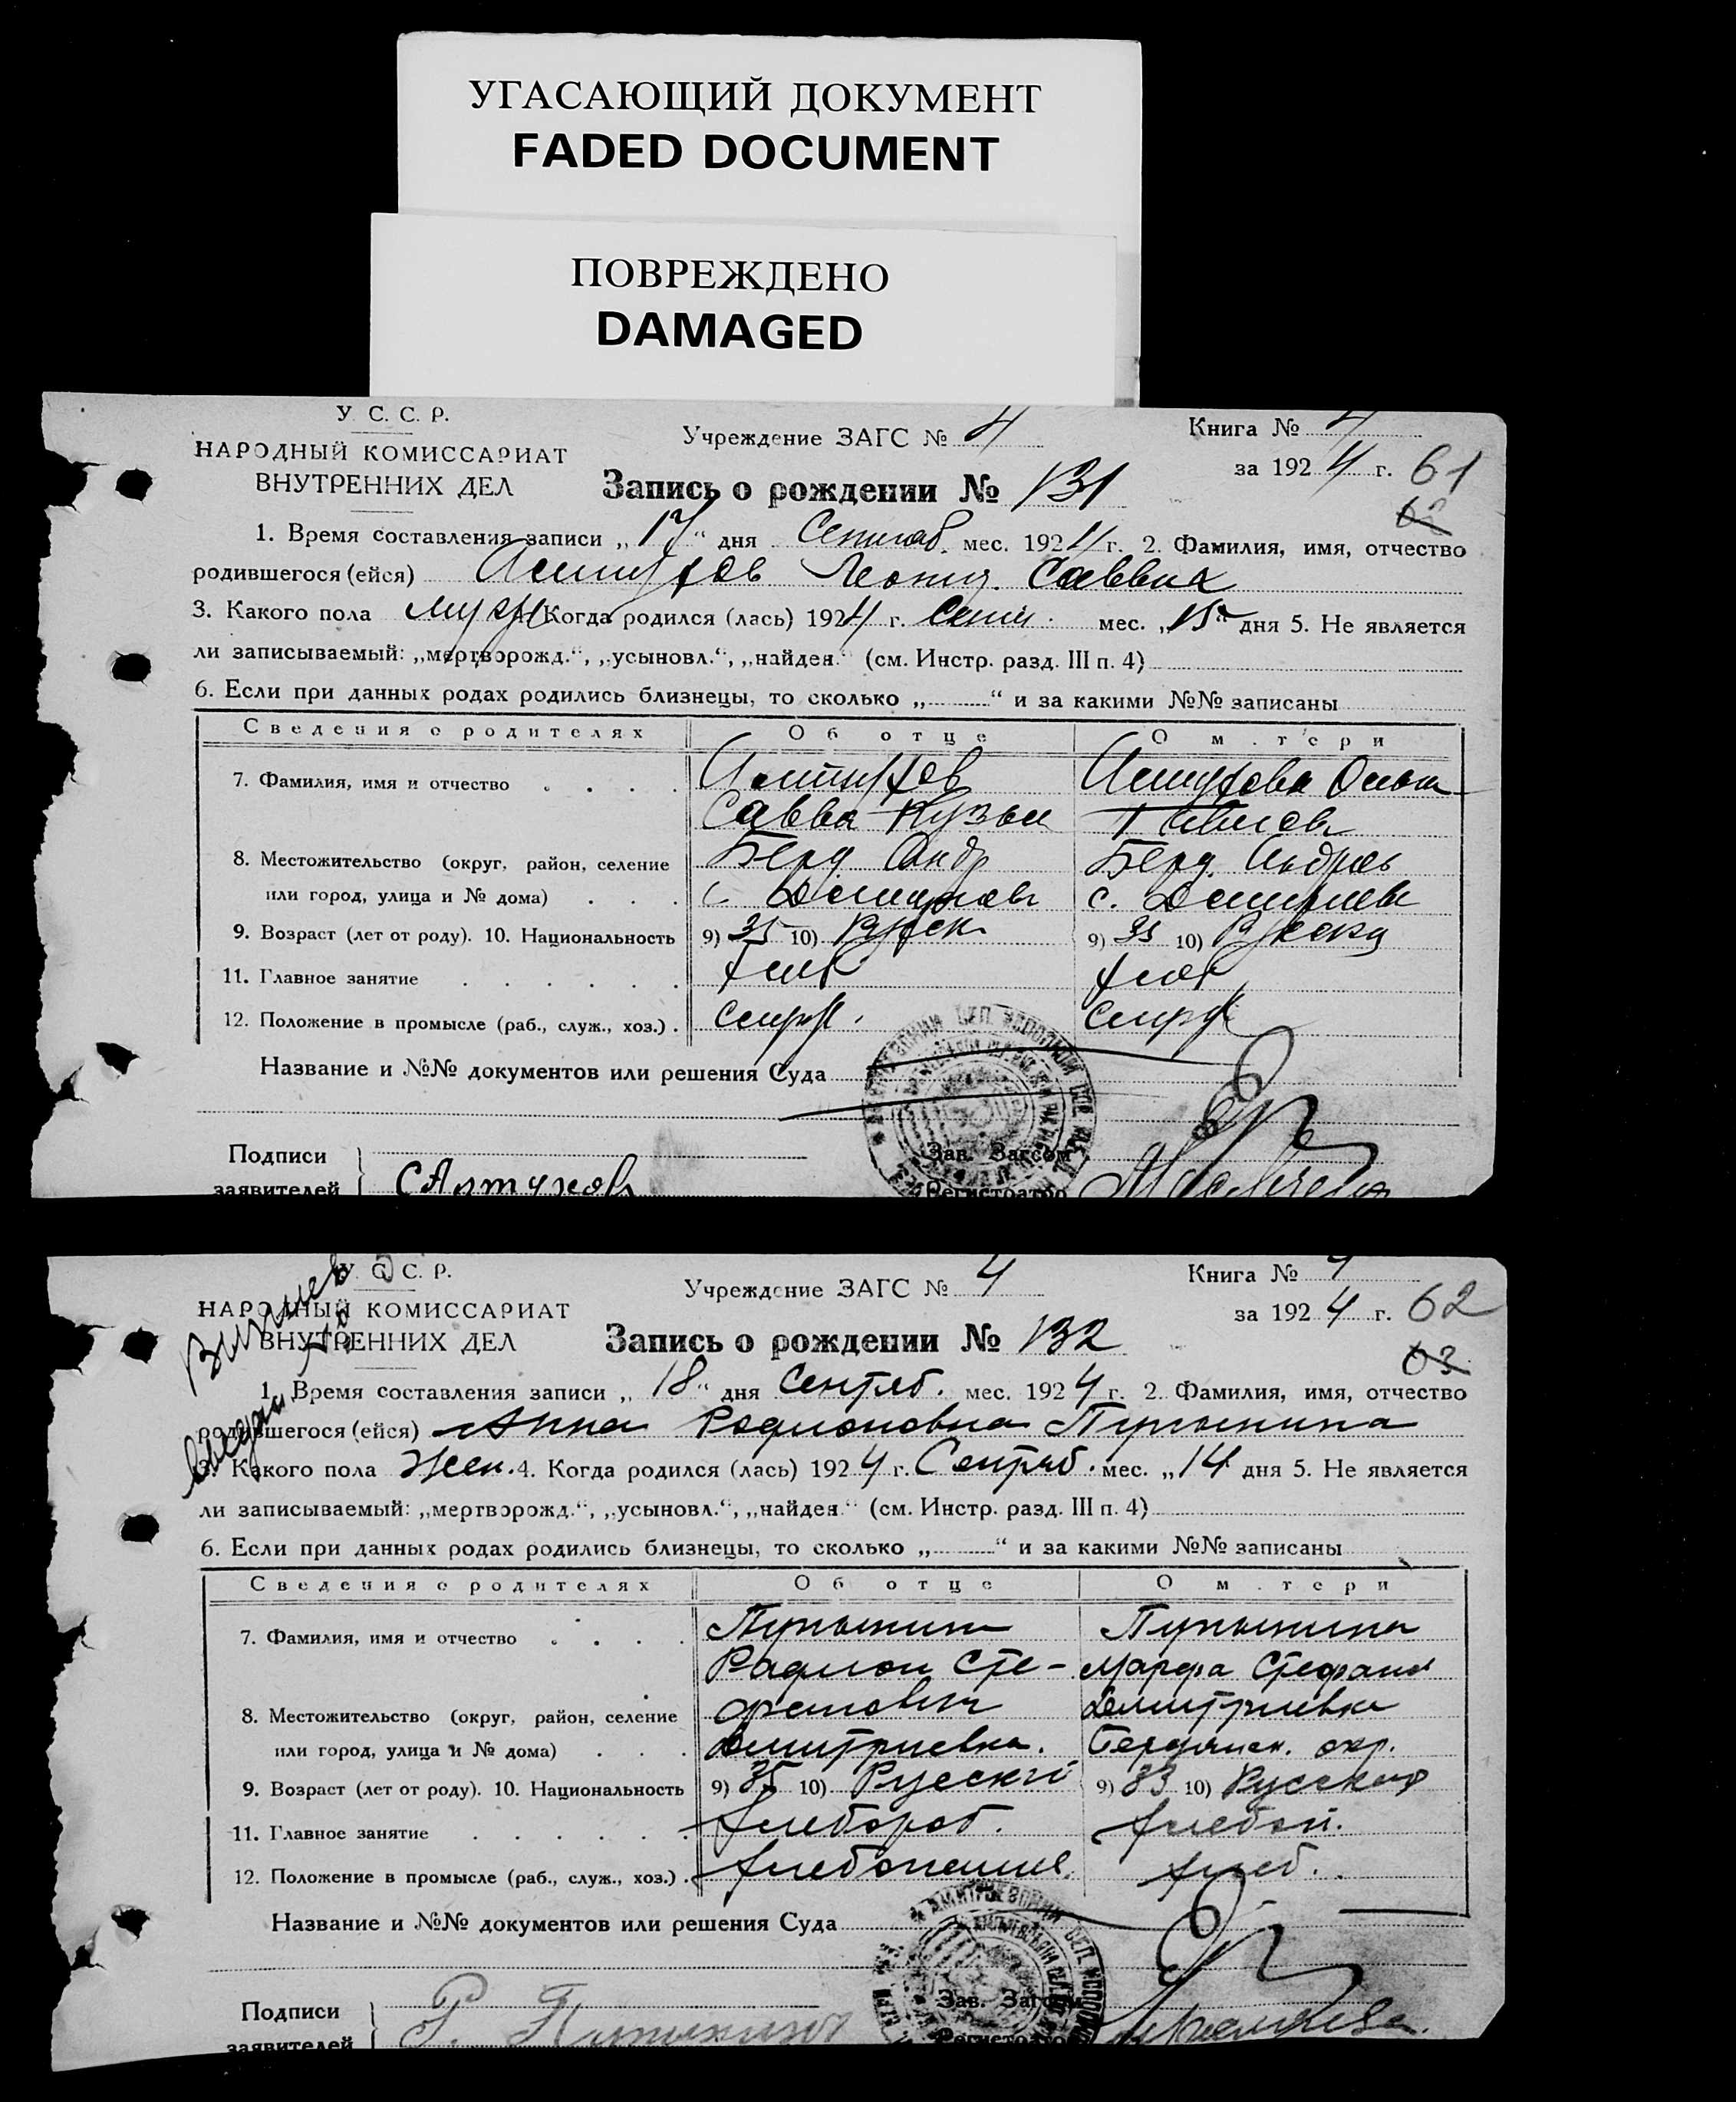 УГАСАЮЩИЙ ДОКУМЕНТ
FADED DOCUMENT
ПОВРЕЖДЕНО
DAMAGED
У С. С. Р.
НАРОДНЫЙ КОМИССАРИАТ
ВНУТРЕННИХ ДЕЛ
Учреждение ЗАГС № 4
Книга № 4
за 1924 г. 61
Запись о рождении № 131
1. Время составления записи „17“ дня Сентяб. мес. 1924 г. 2. Фамилия, имя, отчество
родившегося (ейся) Алтухов Леонид. Саввич
3. Какого пола муж 4. Когда родился (лась) 1924 г. Сент. мес. „15“ дня 5. Не является
ли записываемый: „мертворожд.“, „усыновл.“, „найден.“ (см. Инстр. разд. III п. 4)
6. Если при данных родах родились близнецы, то сколько „ “ и за какими №№ записаны
Сведения о родителях Об отце О м.тери
7. Фамилия, имя и отчество Алтухов Алтухова
Савва Кузьм
8. Местожительство (округ, район, селение Берд. Андр Берд. Андреев
или город, улица и № дома) с. Дмитриев с. Дмитриев
9. Возраст (лет от роду). 10. Национальность 9) 35 10) Русск 9) 35 10) Русска
11. Главное занятие хлеб хлеб
12. Положение в промысле (раб., служ., хоз.)
Название и №№ документов или решения Суда
Подписи
заявителей САлтухов
Зав. Загсом
Регистратор
У. С. С. Р.
НАРОДНЫЙ КОМИССАРИАТ
ВНУТРЕННИХ ДЕЛ
Учреждение ЗАГС № 4
Книга № 4
за 1924 г. 62
63
Запись о рождении № 132
1. Время составления записи „18“ дня Сентяб. мес. 1924 г. 2. Фамилия, имя, отчество
родившегося (ейся) Анна Родионовна Пупынина
3. Какого пола Жен. 4. Когда родился (лась) 1924 г. Сентяб. мес. „14 дня 5. Не является
ли записываемый: „мертворожд.“, „усыновл.“, „найден.“ (см. Инстр. разд. III п. 4)
6. Если при данных родах родились близнецы, то сколько „ “ и за какими №№ записаны
Сведения о родителях Об отце О м.тери
7. Фамилия, имя и отчество Пупынин Пупынина
Радион Сте- Марфа Стефанов
8. Местожительство (округ, район, селение фанович Дмитриевка
или город, улица и № дома) Дмитриевка. Бердянск. окр.
9. Возраст (лет от роду). 10. Национальность 9) 35 10) Русский 9) 33 10) Русская
11. Главное занятие хлебороб. хлебоп.
12. Положение в промысле (раб., служ., хоз.) хлеб.
Название и №№ документов или решения Суда
Подписи
заявителей Р. Пупынин
Зав. Загсом
Регистратор